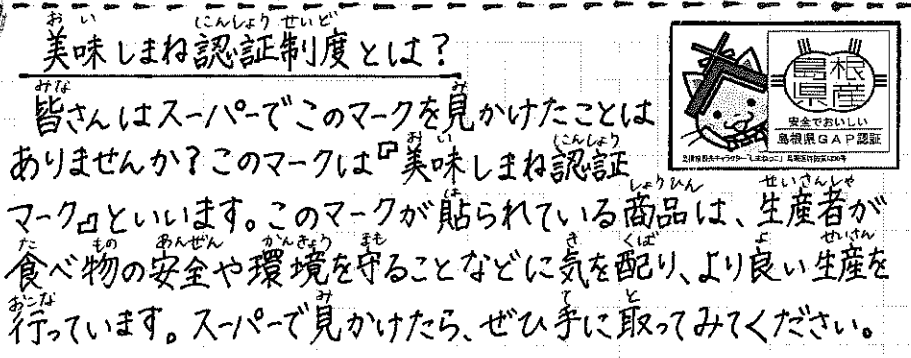 美味しまね認証制度とは？
皆さんはスーパーでこのマークを見かけたことは
ありませんか？このマークは『美味しまね認証
マーク』といいます。このマークが貼られている商品は、生産者が
食べ物の安全や環境を守ることなどに気を配り、より良い生産を
行っています。スーパーで見かけたら、ぜひ手に取ってみてください。
島根
県産
安全でおいしい
島根県GAP認証